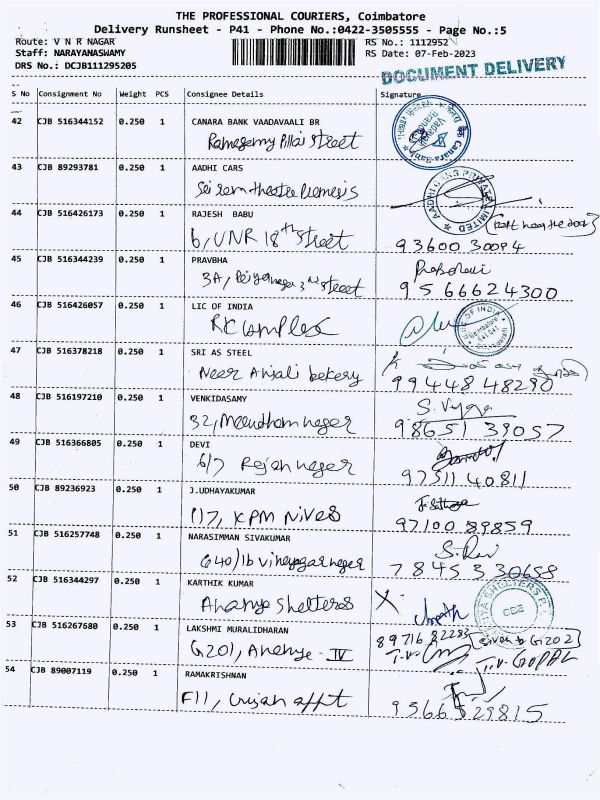 THE PROFESSIONAL COURIERS, Coimbatore
Delivery Runsheet - P41 - Phone No.:0422-3505555 - Page No.:5
Route: V N R NAGAR
Staff: NARAYANASWAMY
DRS No.: DCJB111295205
RS No.: 1112952
RS Date: 07-Feb-2023
DOCUMENT DELIVERY
S No Consignment No Weight PCS Consignee Details Signature
42 CJB 516344152 0.250 1 CANARA BANK VAADAVAALI BR
Ramasamy Pillai Street
Canara Bank
43 CJB 89293781 0.250 1 AADHI CARS
Sai ram theatre
AADHI CARS PRIVATE LIMITED
44 CJB 516426173 0.250 1 RAJESH BABU
6, VNR 18th Street
93600 30094
45 CJB 516344239 0.250 1 PRAVBHA
3A, 3rd Street
9566624300
46 CJB 516426057 0.250 1 LIC OF INDIA
RK Complex
OF INDIA
47 CJB 516378218 0.250 1 SRI AS STEEL
Near Anjali bekery
99448 48290
48 CJB 516197210 0.250 1 VENKIDASAMY
32, nagar
98651 39057
49 CJB 516366805 0.250 1 DEVI
6/7 Rajan nagar
97511 40811
50 CJB 89236923 0.250 1 J.UDHAYAKUMAR
117, KPM Nivas
97100 89859
51 CJB 516257748 0.250 1 NARASIMMAN SIVAKUMAR
G40/1b vinayagar nagar
S. Ravi
78453 30688
52 CJB 516344297 0.250 1 KARTHIK KUMAR
Ananya Shelters
SHELTERS P
CBE
53 CJB 516267680 0.250 1 LAKSHMI MURALIDHARAN
G201, Ananya - IV
89716 82283
Given to G202
T.V. GOPAL
54 CJB 89007119 0.250 1 RAMAKRISHNAN
F11, appt
9566529815